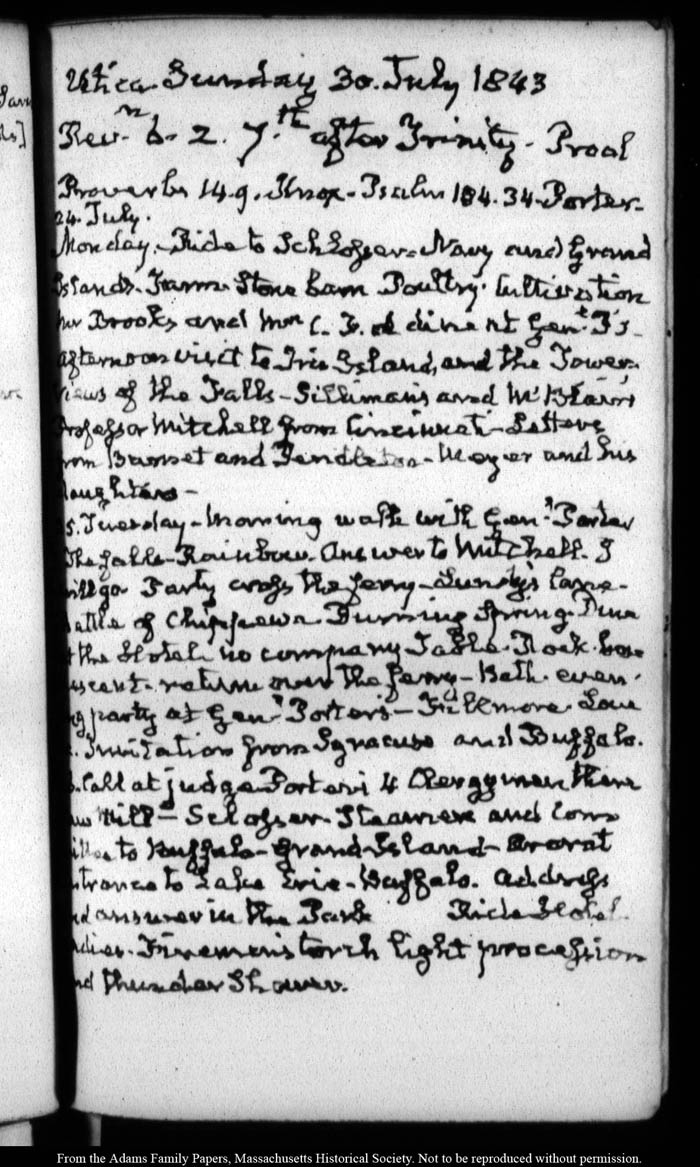 Sam
Utica Sunday 30. July 1843
Rev.n 6. 2. 7.th after Trinity - Proal
Proverbs 14.9. Knox - Psalm 104.34 - Porter -
24. July.
Monday. Ride to Schlosser - Navy and Grand
Islands. Farm. Stone barn Poultry. Cultivation
Mr Brooks and Mrs C. F. A dine at Gen.l P's -
afternoon visit to Iris Island, and the Tower,
views of the Falls - Silliman's and Mr Blair's
Professor Mitchell from Cincinnati - Letters
from and Pendleton - Meyer and his
daughters -
5. Tuesday - Morning walk with Gen.l Porter
The falls - Rainbow. Answer to Mitchell. I
will go Party cross the ferry - Lundy's lane -
battle of Chippewa Burning Spring. Dine
the Hotel no company Table Rock
descent. return over the ferry - Bath. even
ng party at Gen.l Porter's - Fillmore. Love
Invitation from Syracuse and Buffalo.
Call at judge Porter's 4 Clergymen there
Mill - Schlosser. Steamer and Com
ittee to Buffalo - Grand Island - Ararat
ntrance to Lake Erie - Buffalo. Address
nd answer in the Park Ride Hotel
adies. Firemen's torch light procession
nd thunder Shower.
From the Adams Family Papers, Massachusetts Historical Society. Not to be reproduced without permission.